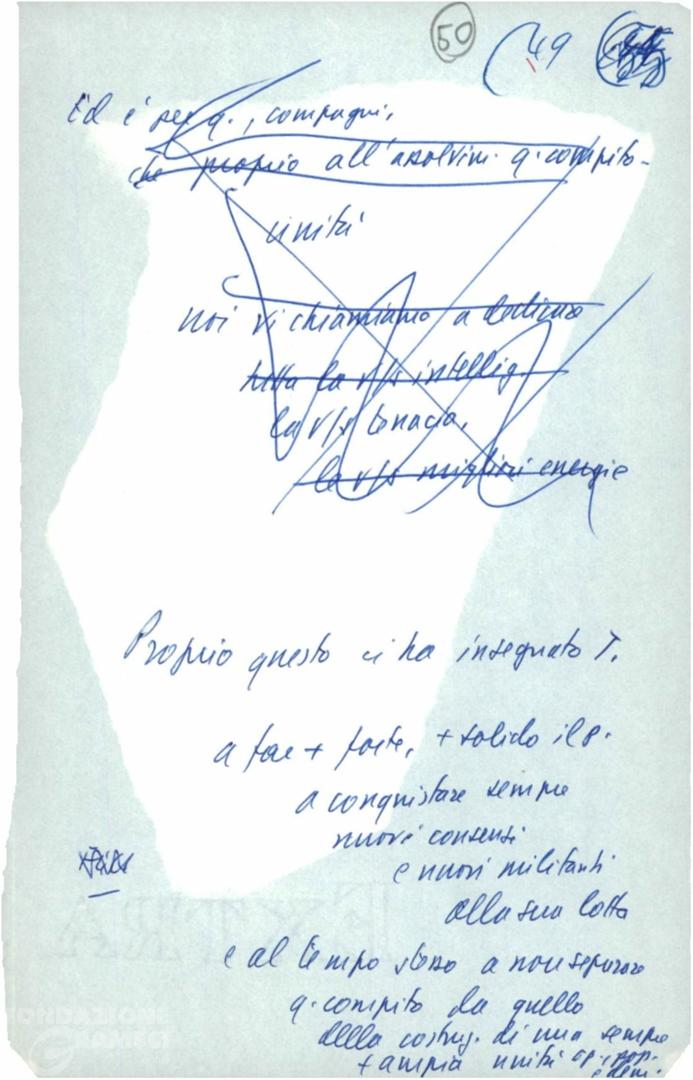 50
49
Ed è per q., compagni,
che proprio all'assolvim. q. compito
unità
noi vi chiamiamo a dedicare
tutta la v/s intellig.
la v/s tenacia,
le v/s migliori energie
Proprio questo ci ha insegnato T.
a fare + forte, + solido il p.
a conquistare sempre
nuovi consensi
e nuovi militanti
alla sua lotta
e al tempo stesso a non separare
q. compito da quello
della costruz. di una sempre
+ ampia unità op. pop.
e dem.
EXTRA
FONDAZIONE
GRAMSCI